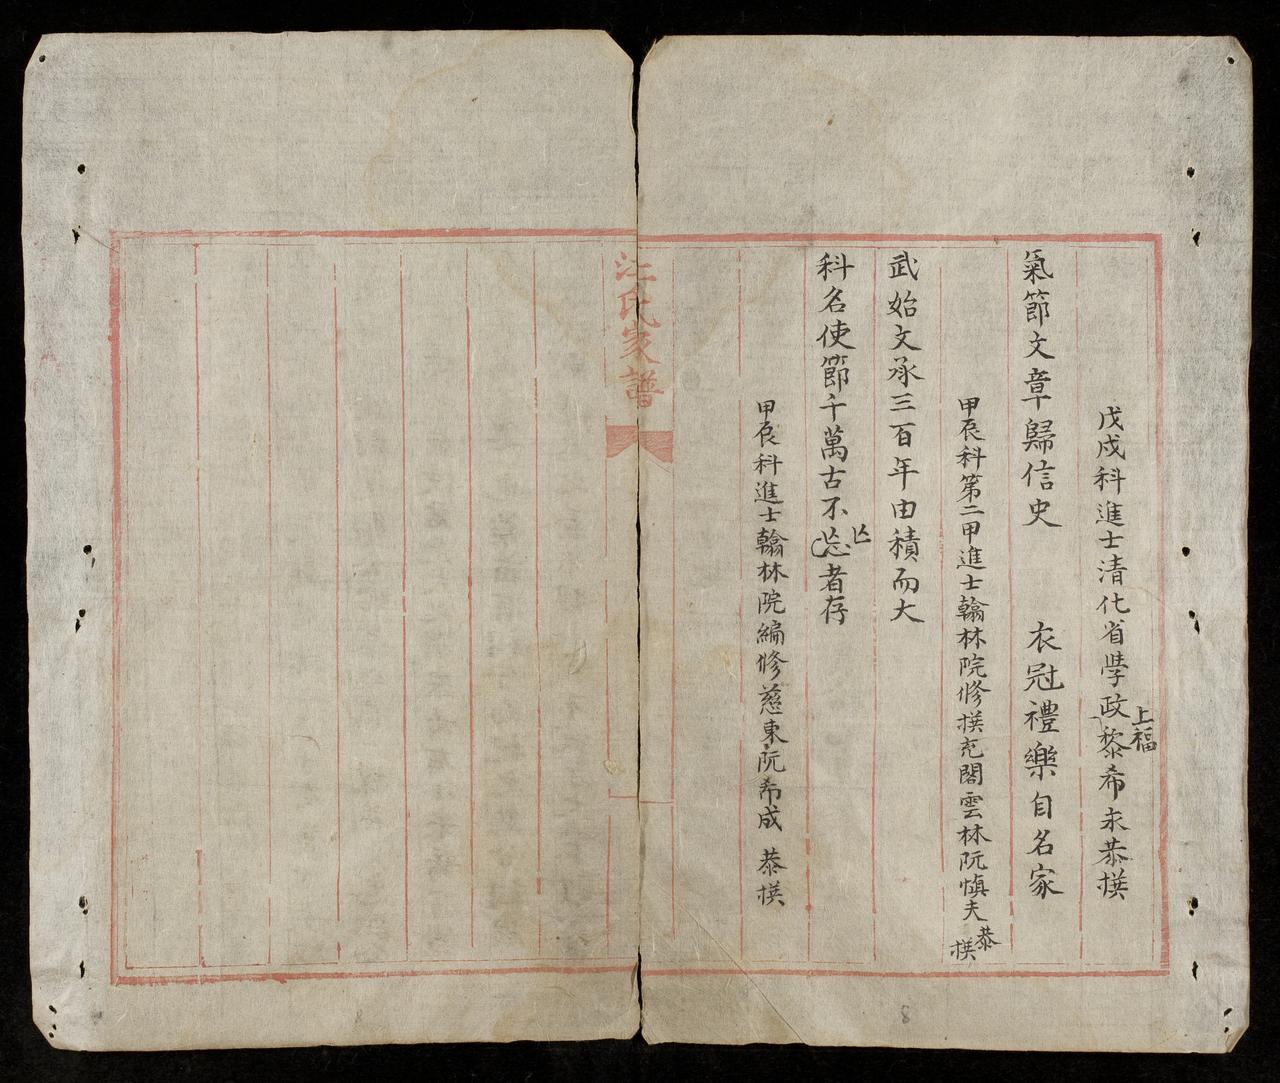 戊戌科進士清化省學政上福黎希永恭撰
氣節文章歸信史　衣冠禮樂自名家
甲辰科第二甲進士翰林院修撰充閣雲林阮慎夫恭撰
武始文承三百年由積而大
科名使節千萬古不忘亡者存
甲辰科進士翰林院編修慈東阮希成　恭撰
江氏家譜
8
8